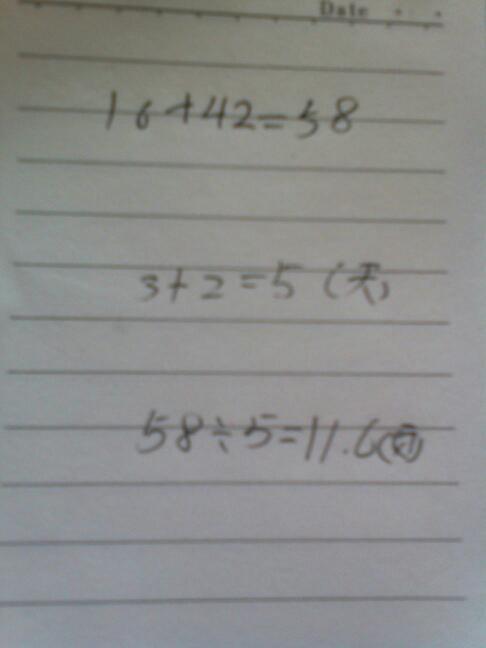 Date
16+42=58
3+2=5(天)
58÷5=11.6